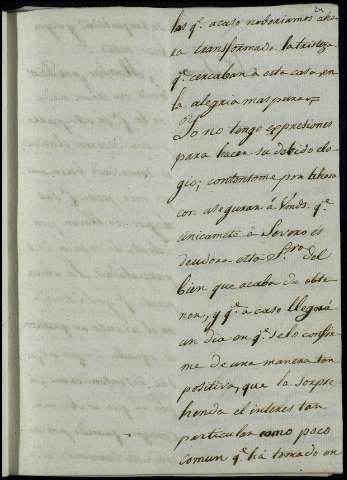 las q.e acaso no veriamos aho
ra transformado la tristeza
q.e cercaban à esta casa, en
la alegria mas pura.
Yo no tengo expresiones
para hacer su debido elo
gio; contentome por ahora
con asegurar à Vmds. q.e
unicamte. à Severo es
deudora esta S.ra del
bien que acaba de obte
ner, y q.e acaso llegará
un dia en q.e se lo confir
me de una manera tan
positiva, que la sorpre
henda el interes tan
particular como poco
comun q.e há tomado en